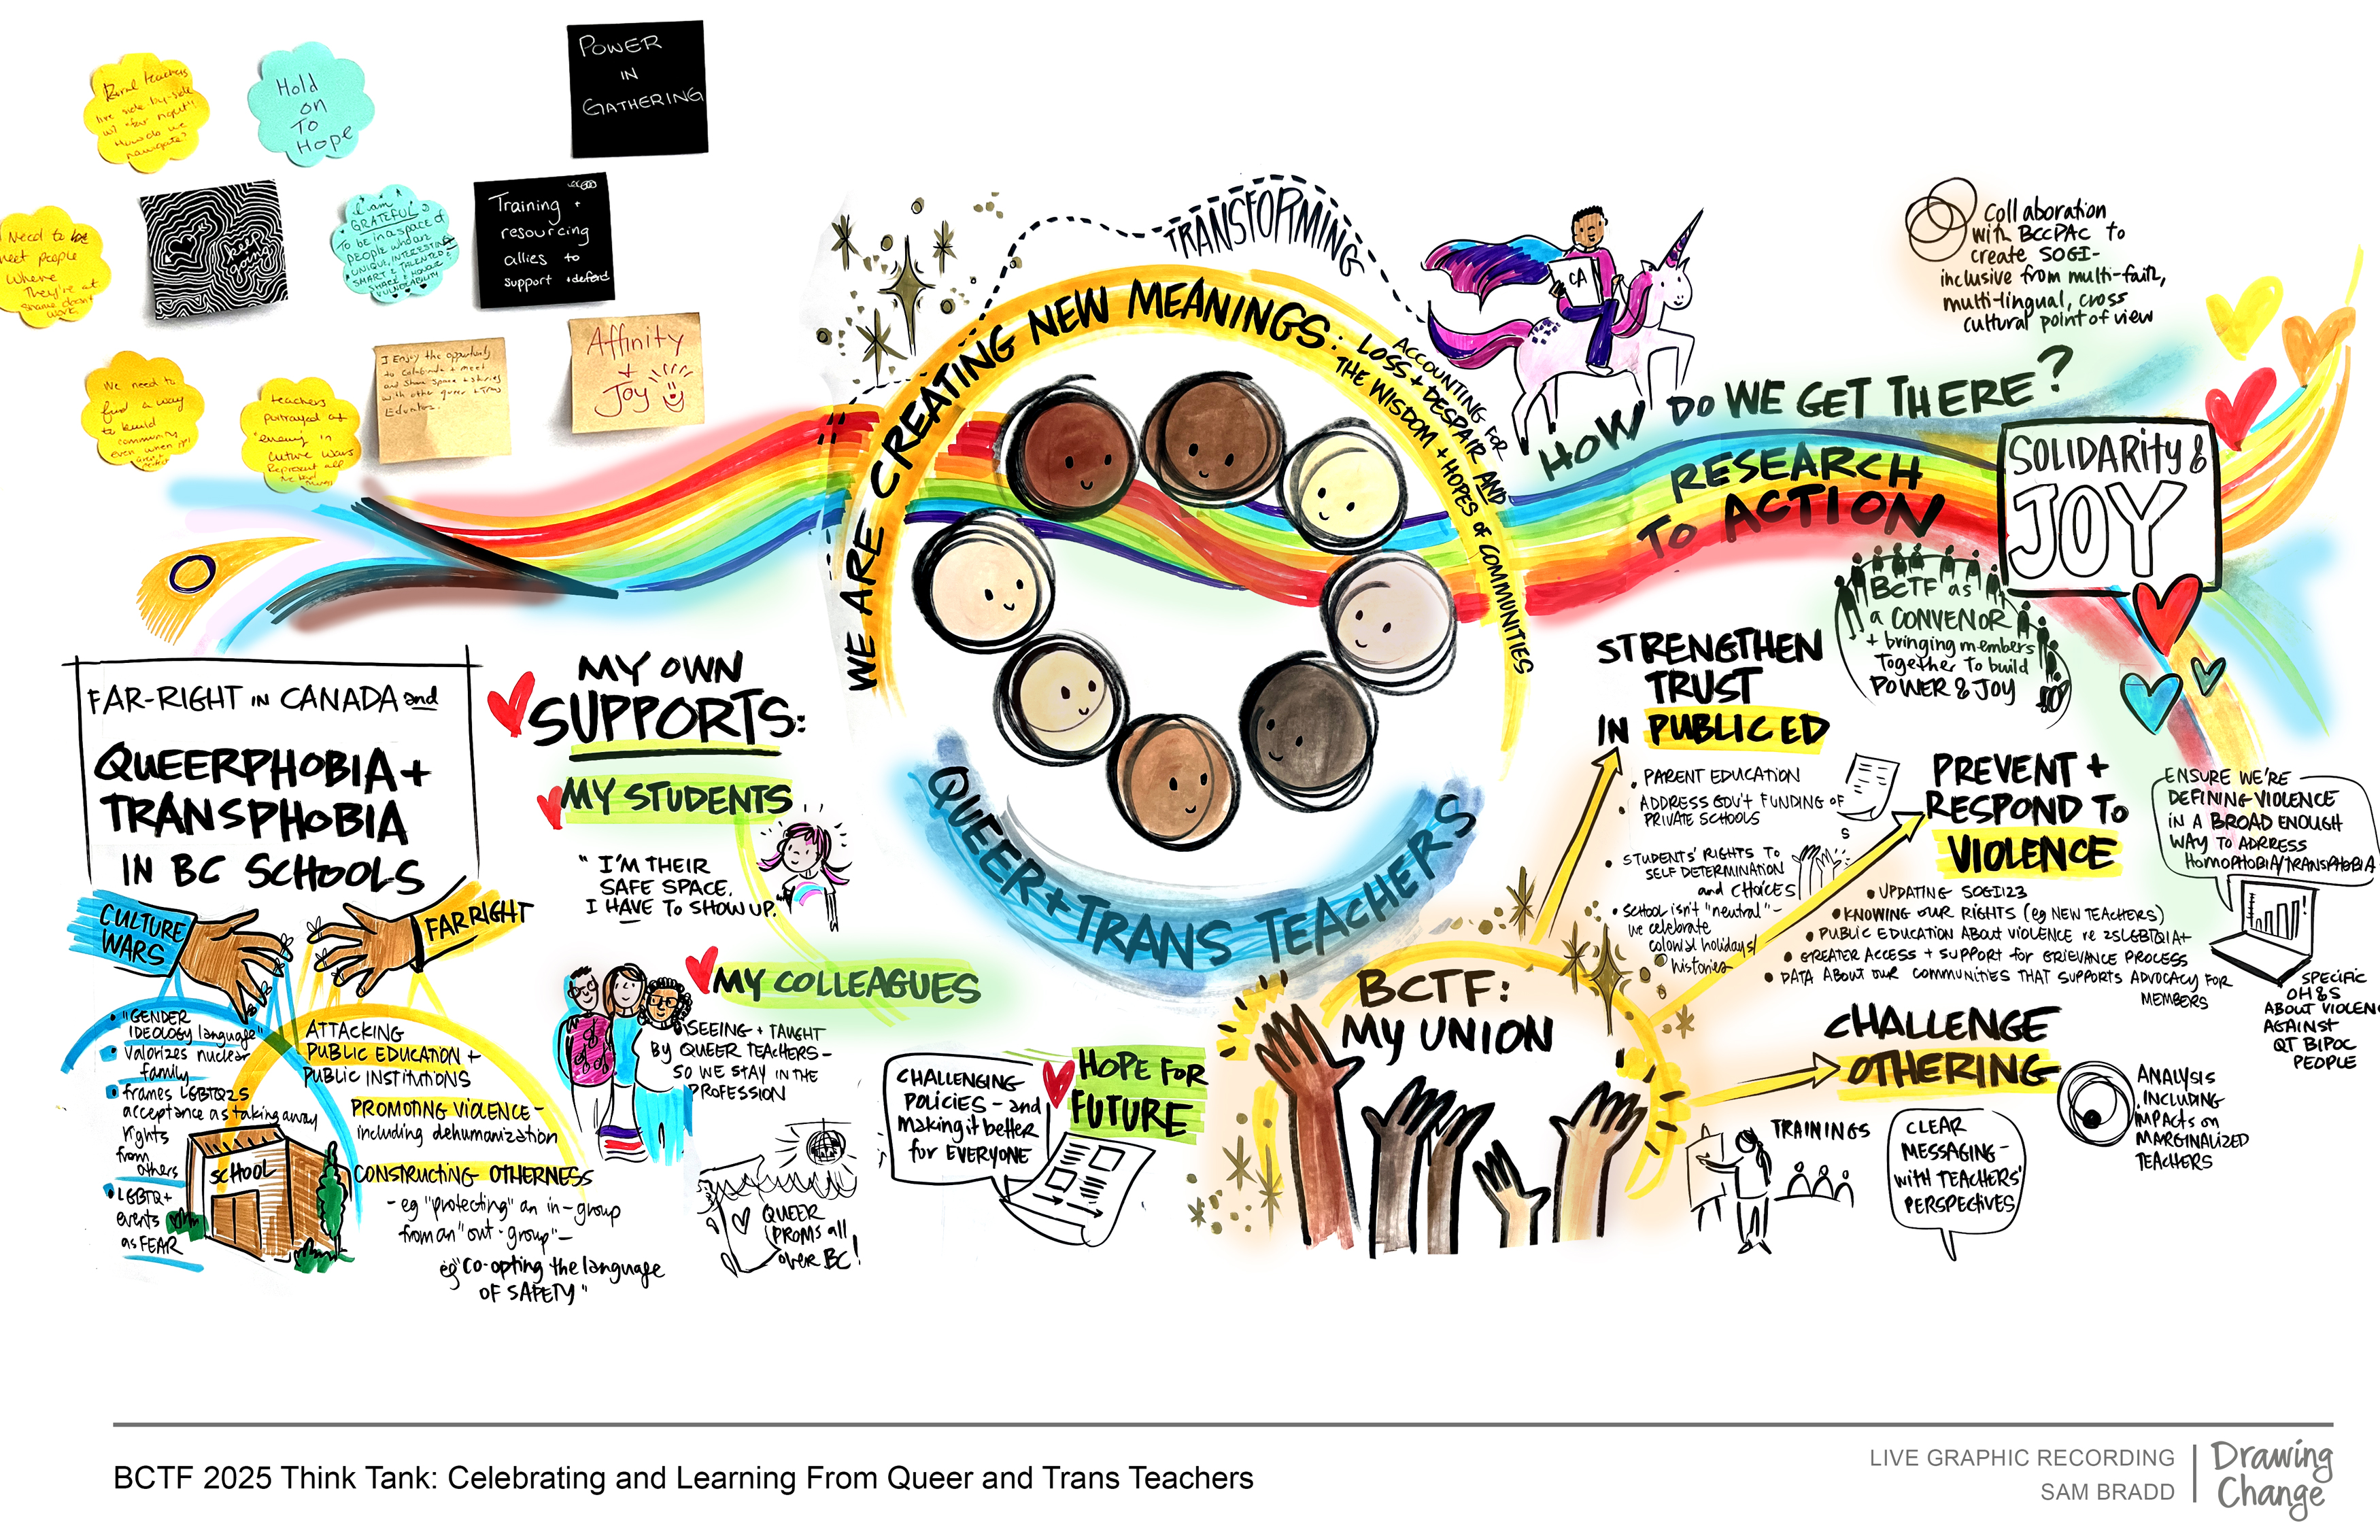 Rural teachers
live side-by-side
w/ "far right"
How do we
navigate?
Hold
on
To
Hope
POWER
IN
GATHERING
Need to be
meet people
Where
They're at
shame doesn't
work.
keep
going
I am
GRATEFUL
TO be in a space of
people who are
UNIQUE, INTERESTING
SMART & TALENTED &
SHARE & HONOUR
VULNERABILITY
Training +
resourcing
allies to
support + defend
We need to
find a way
to build
community
even when it's
teachers
portrayed as
"enemy" in
culture wars
Represent all
I Enjoy the opportunity
to celebrate + meet
and share space + stories
with other queer + Trans
Educators.
Affinity
+
Joy
TRANSFORMING
WE ARE CREATING NEW MEANINGS:
ACCOUNTING FOR
LOSS + DESPAIR AND
THE WISDOM + HOPES of COMMUNITIES
QUEER + TRANS TEACHERS
CA
Collaboration
with BCCPAC to
create SOGI-
inclusive from multi-faith,
multi-lingual, cross
cultural point of view
HOW DO WE GET THERE?
RESEARCH
TO ACTION
SOLIDARITY &
JOY
BCTF as
a CONVENOR
+ bringing members
Together to build
POWER & JOY
FAR-RIGHT IN CANADA and
QUEERPHOBIA +
TRANSPHOBIA
IN BC SCHOOLS
CULTURE
WARS
FAR RIGHT
• "GENDER
IDEOLOGY language"
• Valorizes nuclear
family
• frames LGBTQ2S
acceptance as taking away
rights
from
others
• LGBTQ+
events
as FEAR
SCHOOL
ATTACKING
PUBLIC EDUCATION +
PUBLIC INSTITUTIONS
PROMOTING VIOLENCE -
including dehumanization
CONSTRUCTING OTHERNESS
- eg "protecting" an in-group
from an "out-group" -
eg "co-opting the language
OF SAFETY"
MY OWN
SUPPORTS:
MY STUDENTS
"I'M THEIR
SAFE SPACE.
I HAVE TO SHOW UP.
MY COLLEAGUES
SEEING + TAUGHT
BY QUEER TEACHERS -
SO WE STAY IN THE
PROFESSION
QUEER
PROMS all
over BC!
CHALLENGING
POLICIES - and
making it better
for EVERYONE
HOPE FOR
FUTURE
BCTF:
MY UNION
STRENGTHEN
TRUST
IN PUBLIC ED
• PARENT EDUCATION
• ADDRESS GOV'T FUNDING OF
PRIVATE SCHOOLS
S
• STUDENTS' RIGHTS TO
SELF DETERMINATION
and CHOICES
• SCHOOL ISN'T "NEUTRAL" -
we celebrate
colonial holidays/
histories
PREVENT +
RESPOND TO
VIOLENCE
• UPDATING SOGI123
• KNOWING OUR RIGHTS (eg NEW TEACHERS)
• PUBLIC EDUCATION ABOUT VIOLENCE re 2SLGBTQIA+
• GREATER ACCESS + SUPPORT for GRIEVANCE PROCESS
• DATA ABOUT OUR COMMUNITIES THAT SUPPORTS ADVOCACY FOR
MEMBERS
ENSURE WE'RE
DEFINING VIOLENCE
IN A BROAD ENOUGH
WAY TO ADDRESS
HOMOPHOBIA/TRANSPHOBIA
SPECIFIC
OH&S
ABOUT VIOLENC
AGAINST
QT BIPOC
PEOPLE
CHALLENGE
OTHERING
TRAININGS
CLEAR
MESSAGING -
with TEACHERS'
PERSPECTIVES
ANALYSIS
INCLUDING
IMPACTS on
MARGINALIZED
TEACHERS
BCTF 2025 Think Tank: Celebrating and Learning From Queer and Trans Teachers
LIVE GRAPHIC RECORDING
SAM BRADD
Drawing
Change